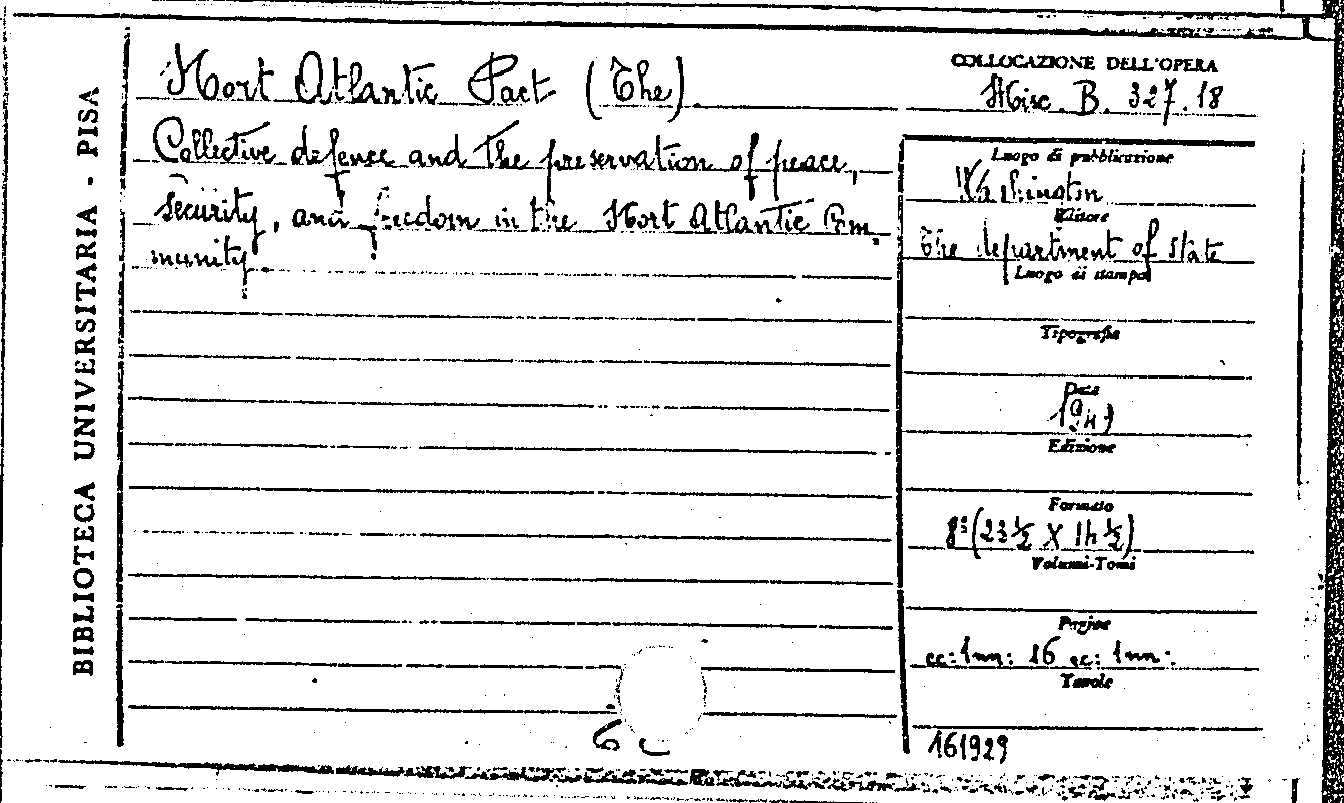 BIBLIOTECA UNIVERSITARIA - PISA
Nort Atlantic Pact (The)
Collective defence and the preservation of peace,
security, and freedom in the Nort Atlantic Com-
munity.
COLLOCAZIONE DELL'OPERA
Misc. B. 327.18
Luogo di pubblicazione
Washington
Editore
The department of State
Luogo di stampa
Tipografia
Data
1949
Edizione
Formato
8° (23 ½ X 14 ½)
Volumi-Tomi
Pagine
cc: 1nn: 16 cc: 1nn:
Tavole
161929